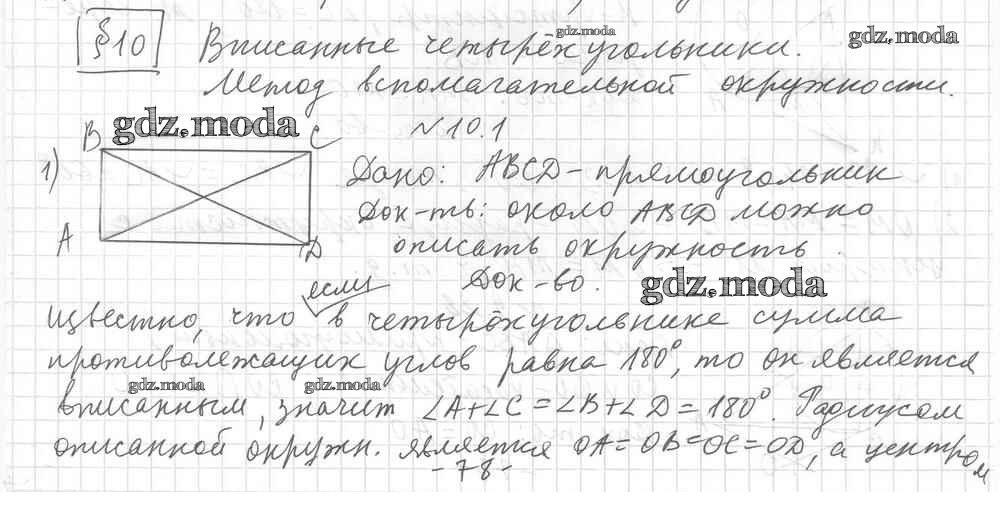 §10 Вписанные четырёхугольники.
gdz.moda
gdz.moda
Метод вспомагательной окружности.
gdz.moda
№10.1
1)
B
C
A
D
Дано: ABCD - прямоугольник
Док-ть: около ABCD можно
описать окружность.
Док-во.
gdz.moda
если
Известно, что в четырёхугольнике сумма
противолежащих углов равна 180°, то он является
gdz.moda
gdz.moda
вписанным, значит ∠A+∠C=∠B+∠D=180°. Радиусом
описанной окружн. является OA=OB=OC=OD, а центром
-78-